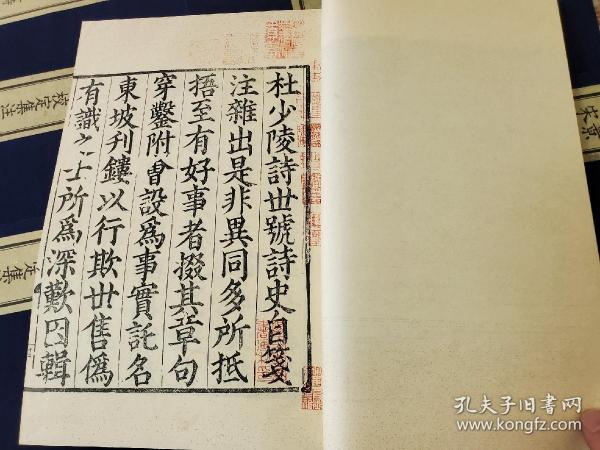 杜少陵詩世號詩史自箋
注雜出是非異同多所抵
捂至有好事者掇其章句
穿鑿附會設為事實託名
東坡刋鏤以行欺世售偽
有識之士所為深歎因輯
校定集注
定集
宋
孔夫子旧书网
www.kongfz.com